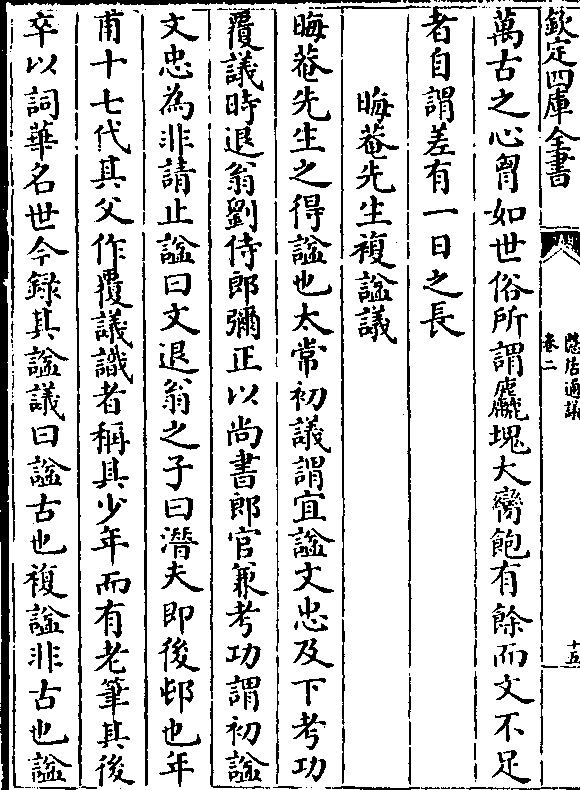 欽定四庫全書
隱居通議
卷二
十五
萬古之心胷如世俗所謂麤塊大臠飽有餘而文不足
者自謂差有一日之長
晦菴先生複諡議
晦菴先生之得諡也太常初議謂宜諡文忠及下考功
覆議時退翁劉侍郎彌正以尚書郎官兼考功謂初諡
文忠為非請止諡曰文退翁之子曰潛夫即後邨也年
甫十七代其父作覆議識者稱其少年而有老筆其後
卒以詞華名世今錄其諡議曰諡古也複諡非古也諡